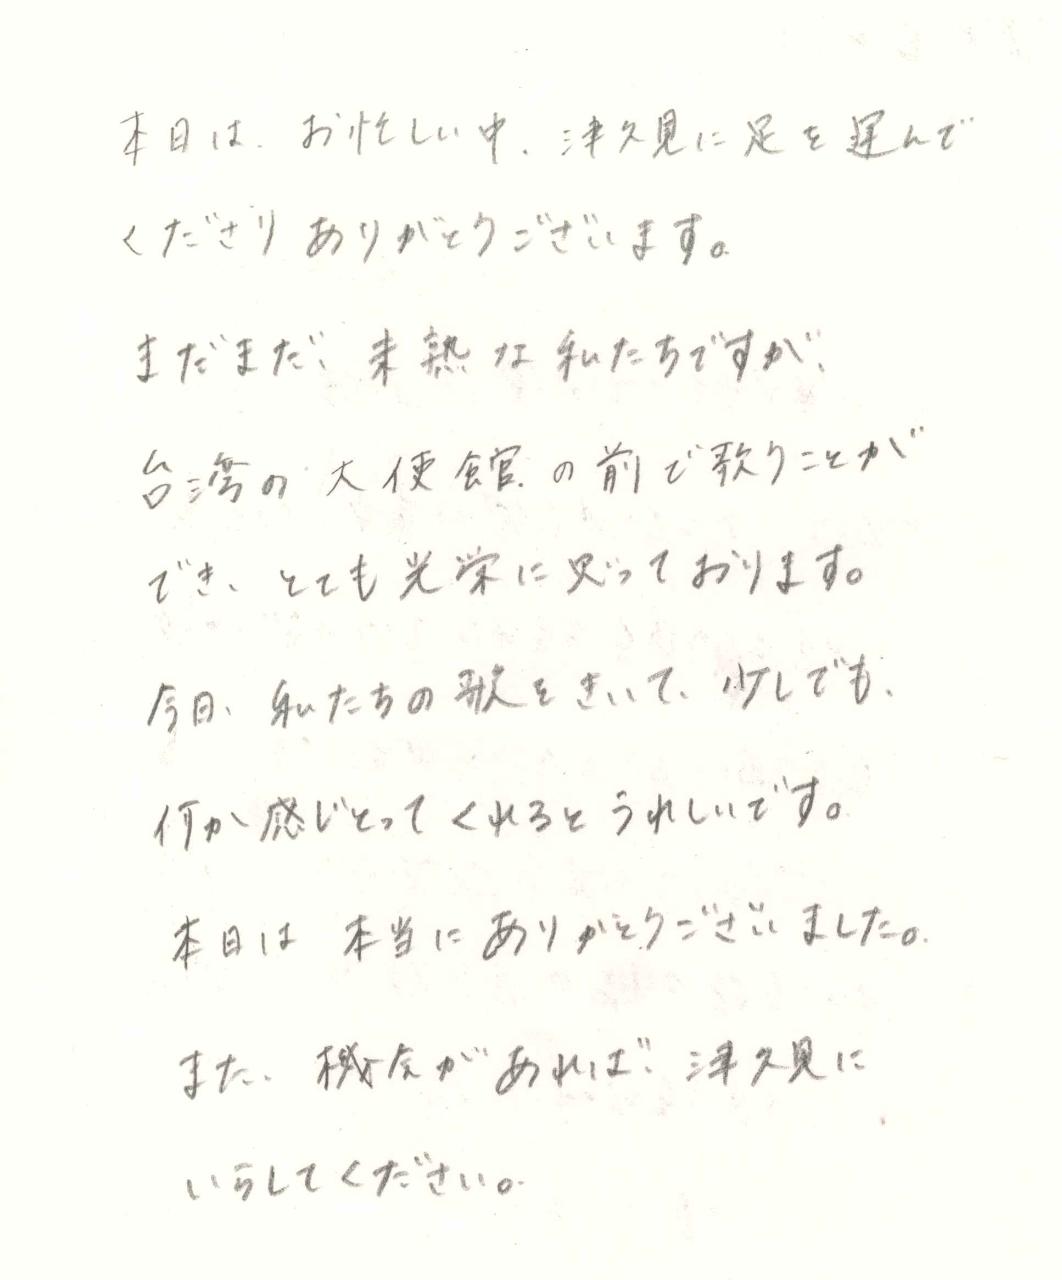 本日は、お忙しい中、津久見に足を運んで
くださりありがとうございます。
まだまだ、未熟な私たちですが、
台湾の大使館の前で歌うことが
でき、とても光栄に思っております。
今日、私たちの歌をきいて、少しでも、
何か感じとってくれるとうれしいです。
本日は本当にありがとうございました。
また、機会があれば、津久見に
いらしてください。